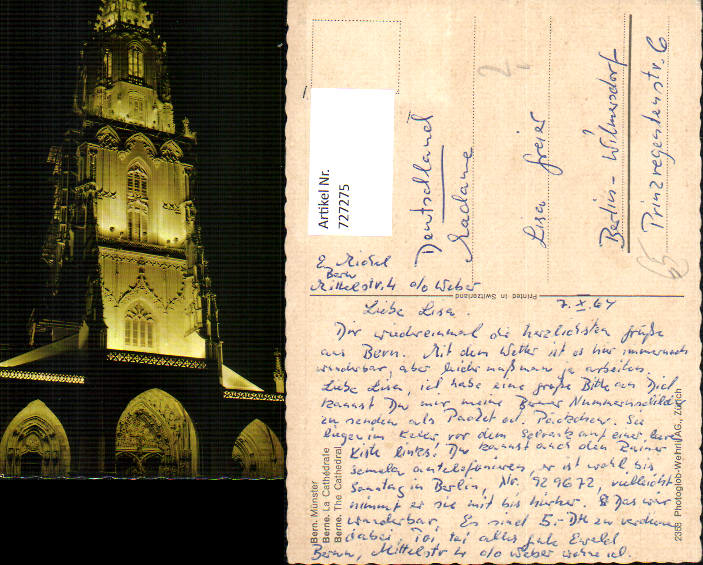 Artikel Nr.
727275
Deutschland
Madame
Lisa Freier
Berlin-Wilmersdorf
Prinzregentenstr. 6
E. Michel
Bern
Mittelstr. 4 c/o Weber
Printed in Switzerland
7.X.64
Liebe Lisa.
Dir wiedereinmal die herzlichsten Grüße
aus Bern. Mit dem Wetter ist es hier immernoch
wunderbar, aber leider muß man ja arbeiten.
Liebe Lisa, ich habe eine große Bitte an Dich
kannst Du mir meine Berner Nummernschilder
zu senden als Paket od. Päckchen. Sie
liegen im Keller vor dem auf einer
Kiste links! Du kannst auch den Rainer
antelefonieren, er ist wohl bis
Sonntag in Berlin, Nr. 929672, vielleicht
nimmt er sie mit bis hierher. Das wär
wunderbar. Es sind 5.- DM zu verdienen
dabei. alles gute Ewald
Bern, Mittelstr 4 c/o Weber
Bern. Münster
Berne. La Cathédrale
Berne. The Cathedral
2353 Photoglob-Wehrli AG., Zürich
65